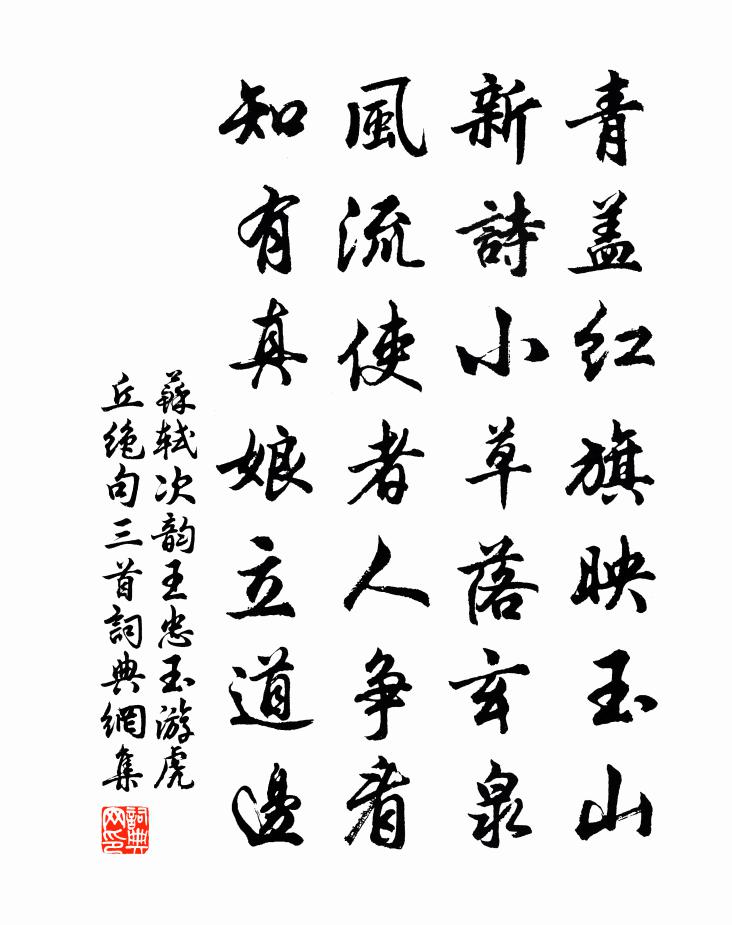 青盖红旗映玉山
新詩小草落玄泉
風流使者人争看
知有真娘立道邊
蘇軾次韵王忠玉游虎
丘绝句三首詞典網集
詞典
网印